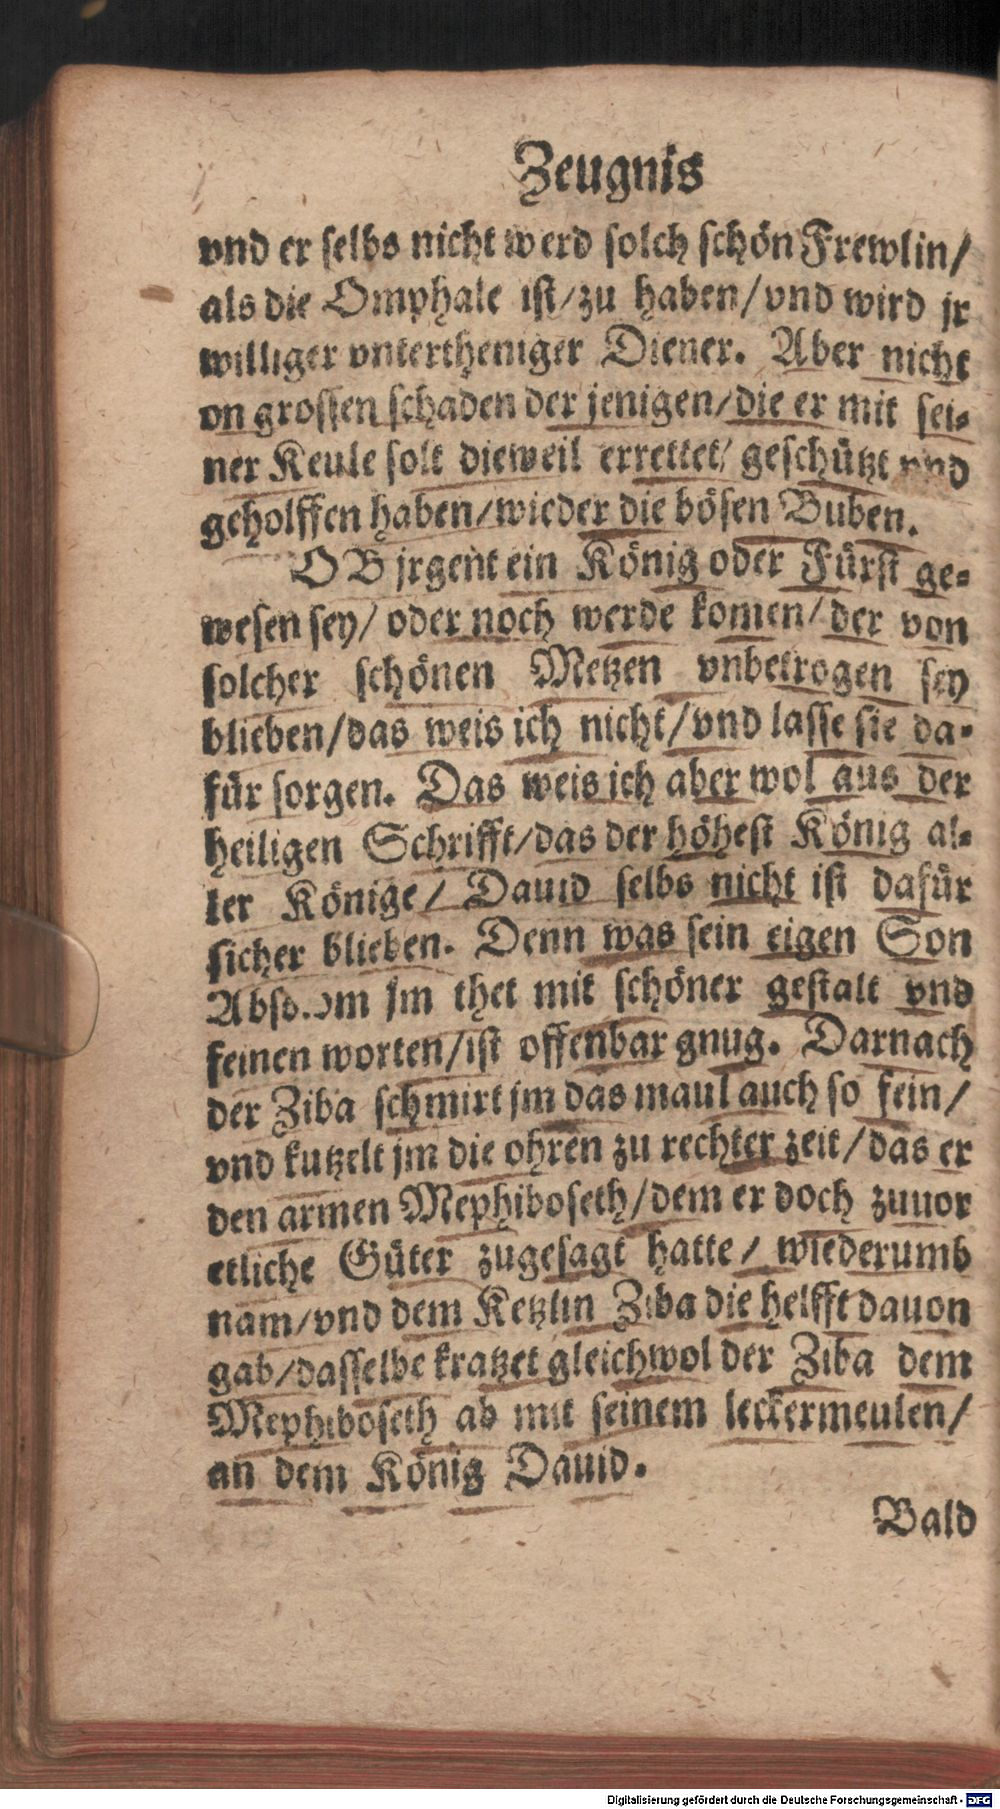 Zeugnis
vnd er selbs nicht werd solch schön Frewlin/
als die Omphale ist/zu haben/vnd wird jr
williger vntertheniger Diener. Aber nicht
on grossen schaden der jenigen/die er mit sei-
ner Keule solt dieweil errettet/ geschützt vnd
geholffen haben/wieder die bösen Buben.
OB jrgent ein König oder Fürst ge-
wesen sey/ oder noch werde komen/der von
solcher schönen Metzen vnbetrogen sey
blieben/das weis ich nicht/vnd lasse sie da-
für sorgen. Das weis ich aber wol aus der
heiligen Schrifft/das der höhest König al-
ler Könige/ Dauid selbs nicht ist dafür
sicher blieben. Denn was sein eigen Son
Absolom jm thet mit schöner gestalt vnd
feinen worten/ist offenbar gnug. Darnach
der Ziba schmirt jm das maul auch so fein/
vnd kutzelt jm die ohren zu rechter zeit/das er
den armen Mephiboseth/dem er doch zuuor
etliche Güter zugesagt hatte/ wiederumb
nam/vnd dem Ketzlin Ziba die helfft dauon
gab/dasselbe kratzet gleichwol der Ziba dem
Mephiboseth ab mit seinem leckermeulen/
an dem König Dauid.
Bald
Digitalisierung gefördert durch die Deutsche Forschungsgemeinschaft - DFG